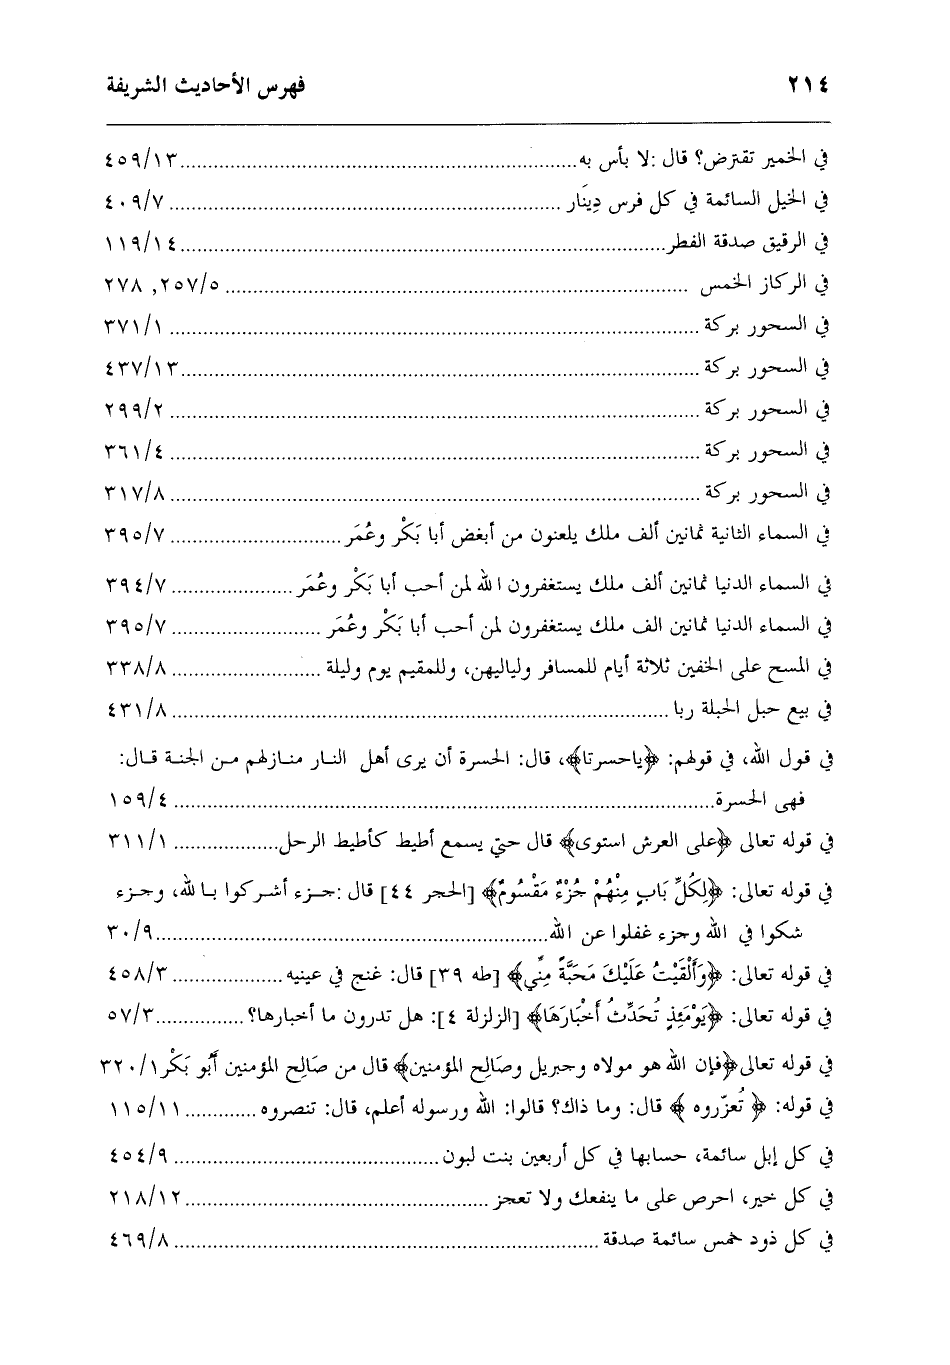 ٢١٤ فهرس الأحاديث الشريفة
في الخمير تقترض؟ قال :لا بأس به..........٤٥٩/١٣
في الخيل السائمة في كل فرس دِينَار ..........٤٠٩/٧
في الرقيق صدقة الفطر..........١١٩/١٤
في الركاز الخمس ..........٢٥٧/٥, ٢٧٨
في السحور بركة ..........٣٧١/١
في السحور بركة ..........٤٣٧/١٣
في السحور بركة ..........٢٩٩/٢
في السحور بركة ..........٣٦١/٤
في السحور بركة ..........٣١٧/٨
في السماء الثانية ثمانين ألف ملك يلعنون من أبغض أبا بَكْر وعُمَر..........٣٩٥/٧
في السماء الدنيا ثمانين ألف ملك يستغفرون الله لمن أحب أبا بَكْر وعُمَر..........٣٩٤/٧
في السماء الدنيا ثمانين الف ملك يستغفرون لمن أحب أبا بَكْر وعُمَر ..........٣٩٥/٧
في المسح على الخفين ثلاثة أيام للمسافر ولياليهن، وللمقيم يوم وليلة ..........٣٣٨/٨
في بيع حبل الحبلة ربا ..........٤٣١/٨
في قول الله، في قولهم: ﴿ياحسرتا﴾، قال: الحسرة أن يرى أهل النار منازلهم من الجنة قال:
فهى الحسرة..........١٥٩/٤
في قوله تعالى ﴿على العرش استوى﴾ قال حتي يسمع أطيط كأطيط الرحل..........٣١١/١
في قوله تعالى: ﴿لِكُلِّ بَابٍ مِنْهُمْ جُزْءٌ مَقْسُومٌ﴾ [الحجر ٤٤] قال :جزء أشركوا بالله، وجزء
شكوا في الله وجزء غفلوا عن الله..........٣٠/٩
في قوله تعالى: ﴿وَأَلْقَيْتُ عَلَيْكَ مَحَبَّةً مِنِّي﴾ [طه ٣٩] قال: غنج في عينيه..........٤٥٨/٣
في قوله تعالى: ﴿يَوْمَئِذٍ تُحَدِّثُ أَخْبَارَهَا﴾ [الزلزلة ٤]: هل تدرون ما أخبارها؟..........٥٧/٣
في قوله تعالى﴿فإن الله هو مولاه وجبريل وصَالِح المؤمنين﴾ قال من صَالِح المؤمنين أَبُو بَكْر٣٢٠/١
في قوله: ﴿ تُعزّروه ﴾ قال: وما ذاك؟ قالوا: الله ورسوله أعلم، قال: تنصروه ..........١١٥/١١
في كل إبل سائمة، حسابها في كل أربعين بنت لبون..........٤٥٤/٩
في كل خير، احرص على ما ينفعك ولا تعجز ..........٢١٨/١٢
في كل ذود خمس سائمة صدقة ..........٤٦٩/٨